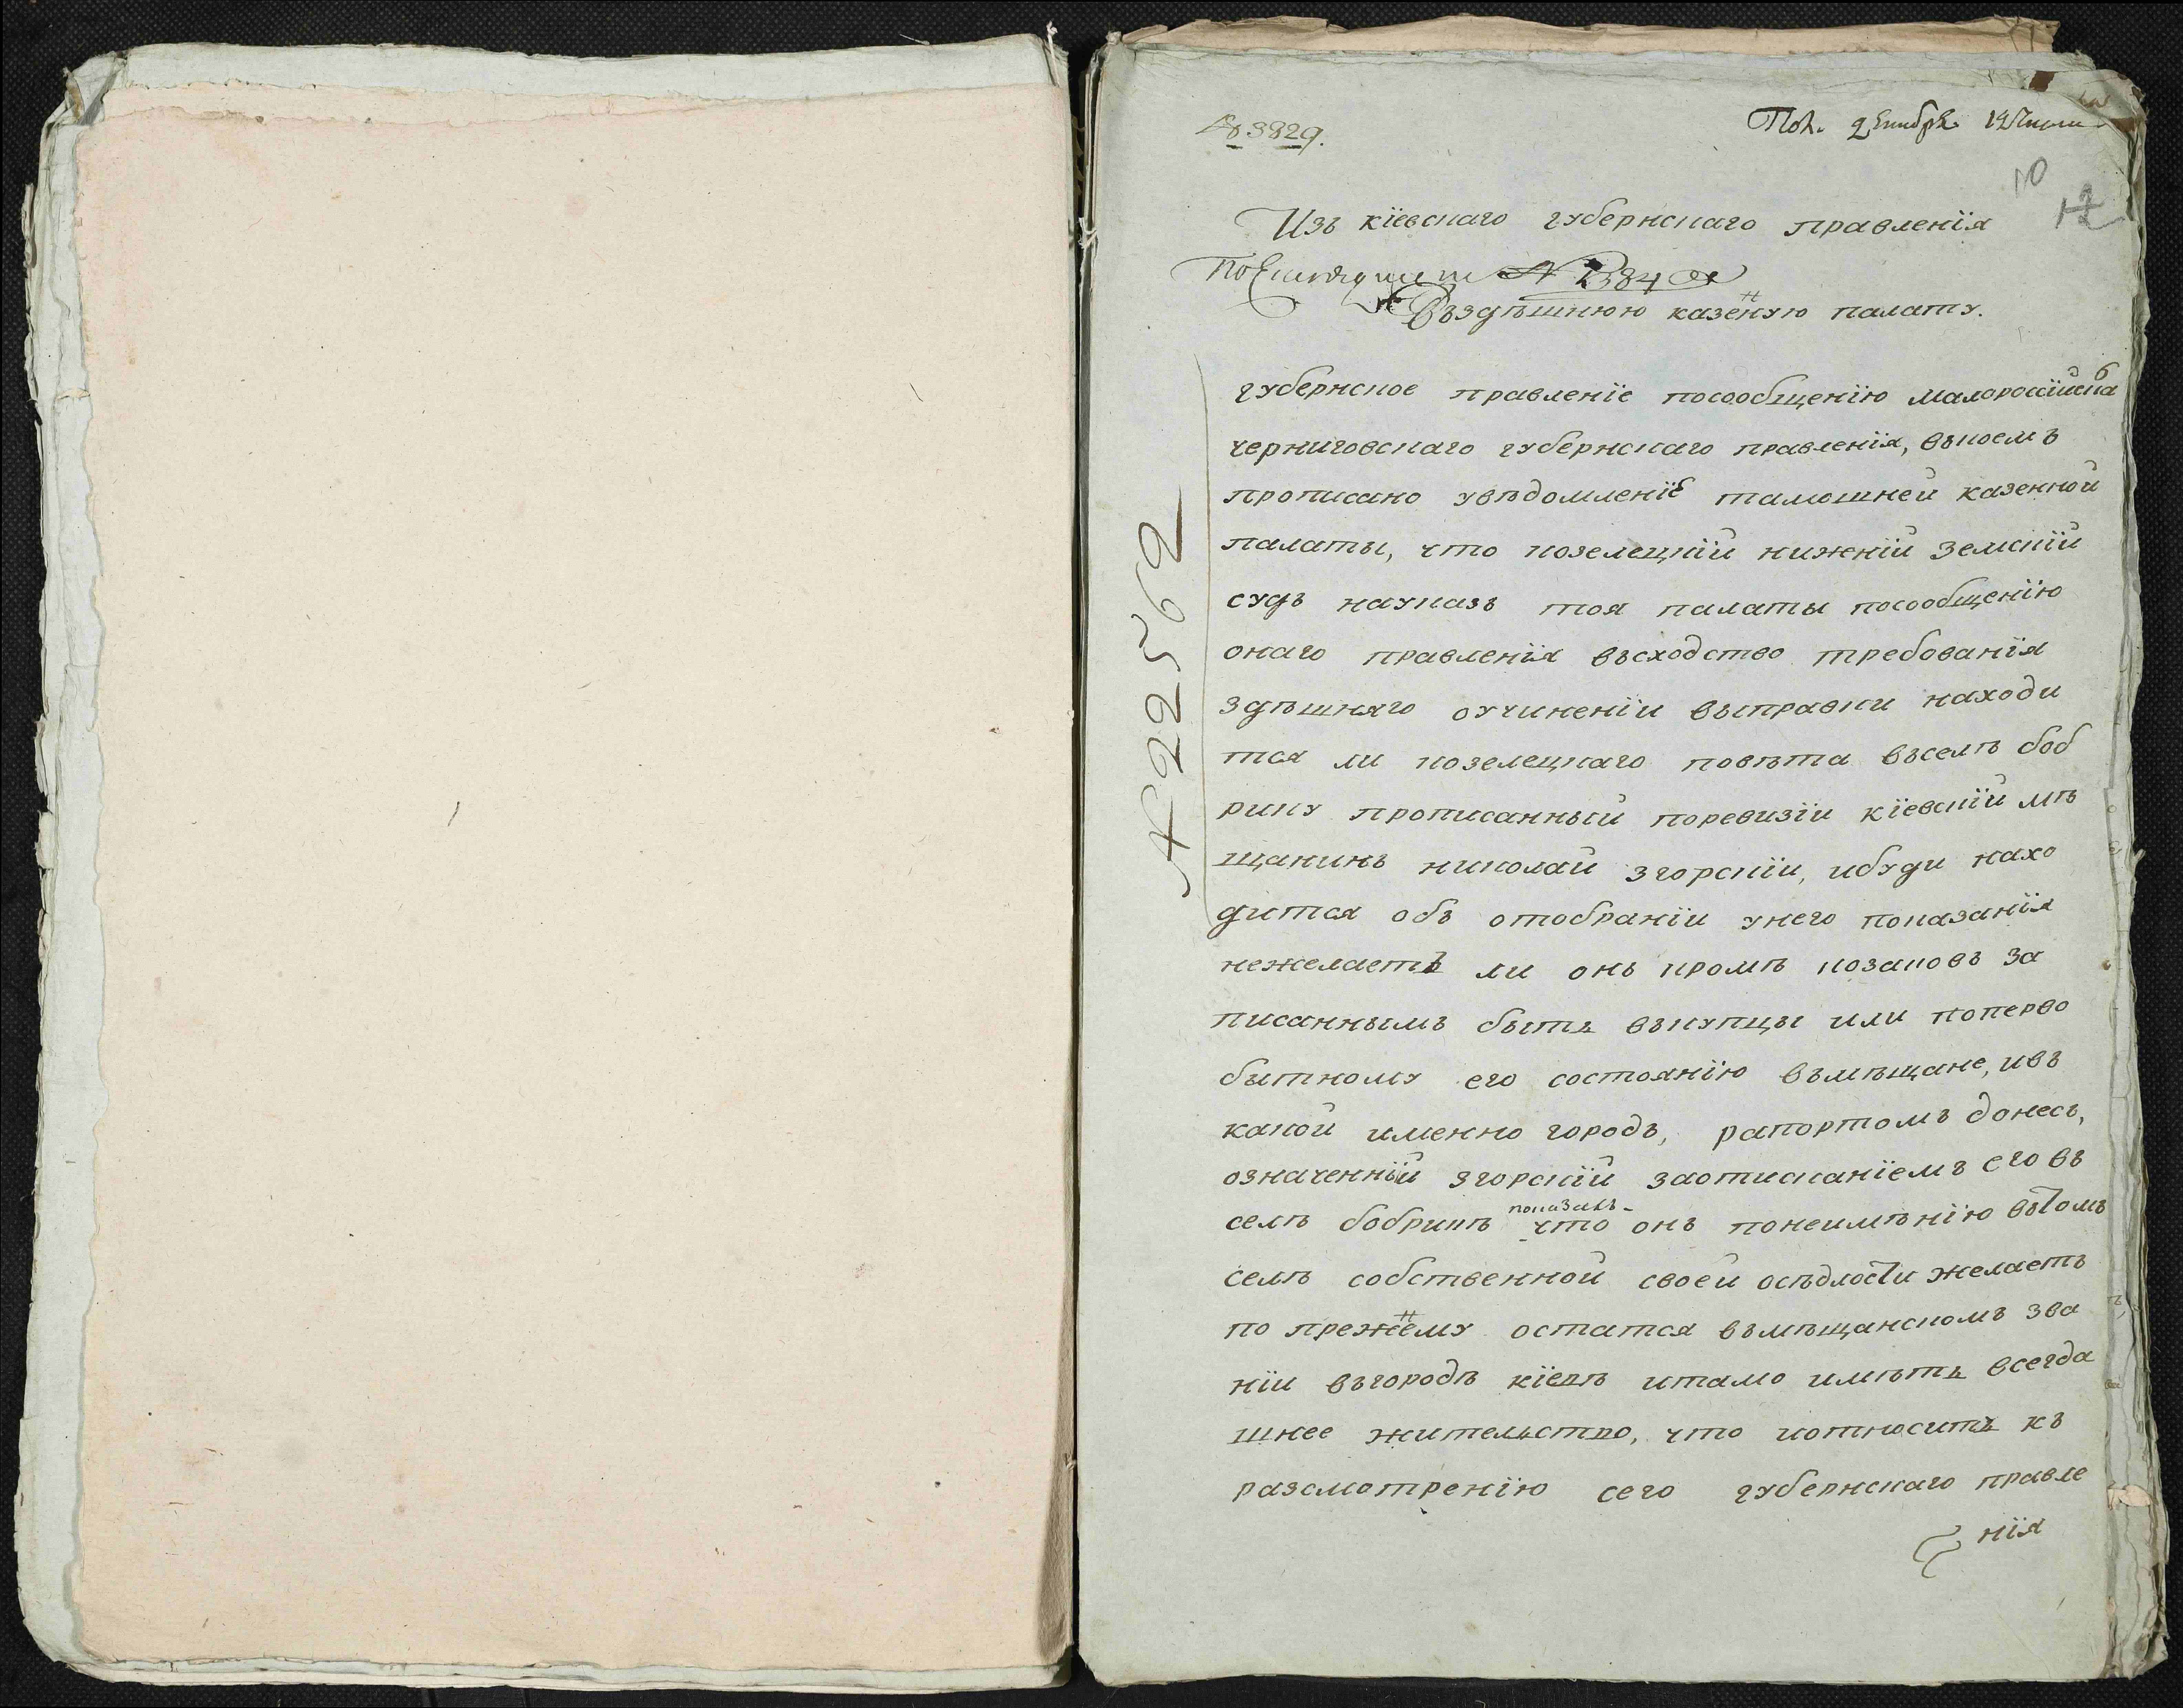 № 3829.
Пол. декабря 12
10
12
Изъ кіевскаго губернскаго правленія
№ 2384
Въздѣшнюю казенную палату.
губернское правленіе посообщенію малороссійска
черниговскаго губернскаго правленія, въкоемъ
прописано увѣдомленіе тамошней казенной
палаты, что козелецкій нижній земскій
судъ науказъ тоя палаты посообщенію
онаго правленія въсходство требованія
здѣшняго оучиненіи выправки находи
тся ли козелецкаго повѣта въселѣ боб
рику прописанный поревизіи кіевскій мѣ
щанинъ николай згорскій, ибуди нахо
дится объ отобраніи унего показанія
нежелаетъ ли онъ кромѣ козаковъ за
писаннымъ быть въкупцы или поперво
бытному его состоянію въмѣщане, ивъ
какой именно городъ, рапортомъ донесъ,
означенній згорскій заотисканіемъ его въ
селѣ бобрикѣ показалъ что онъ понеимѣнію вътомъ
селѣ собственной своей осѣдлости желаетъ
по прежнему остатся въмѣщанскомъ зва
ніи въгородѣ кіевѣ итамо имѣть всегда
шнее жительство, что иотноситъ къ
разсмотренію сего губернскаго правле
нія
№ 22562